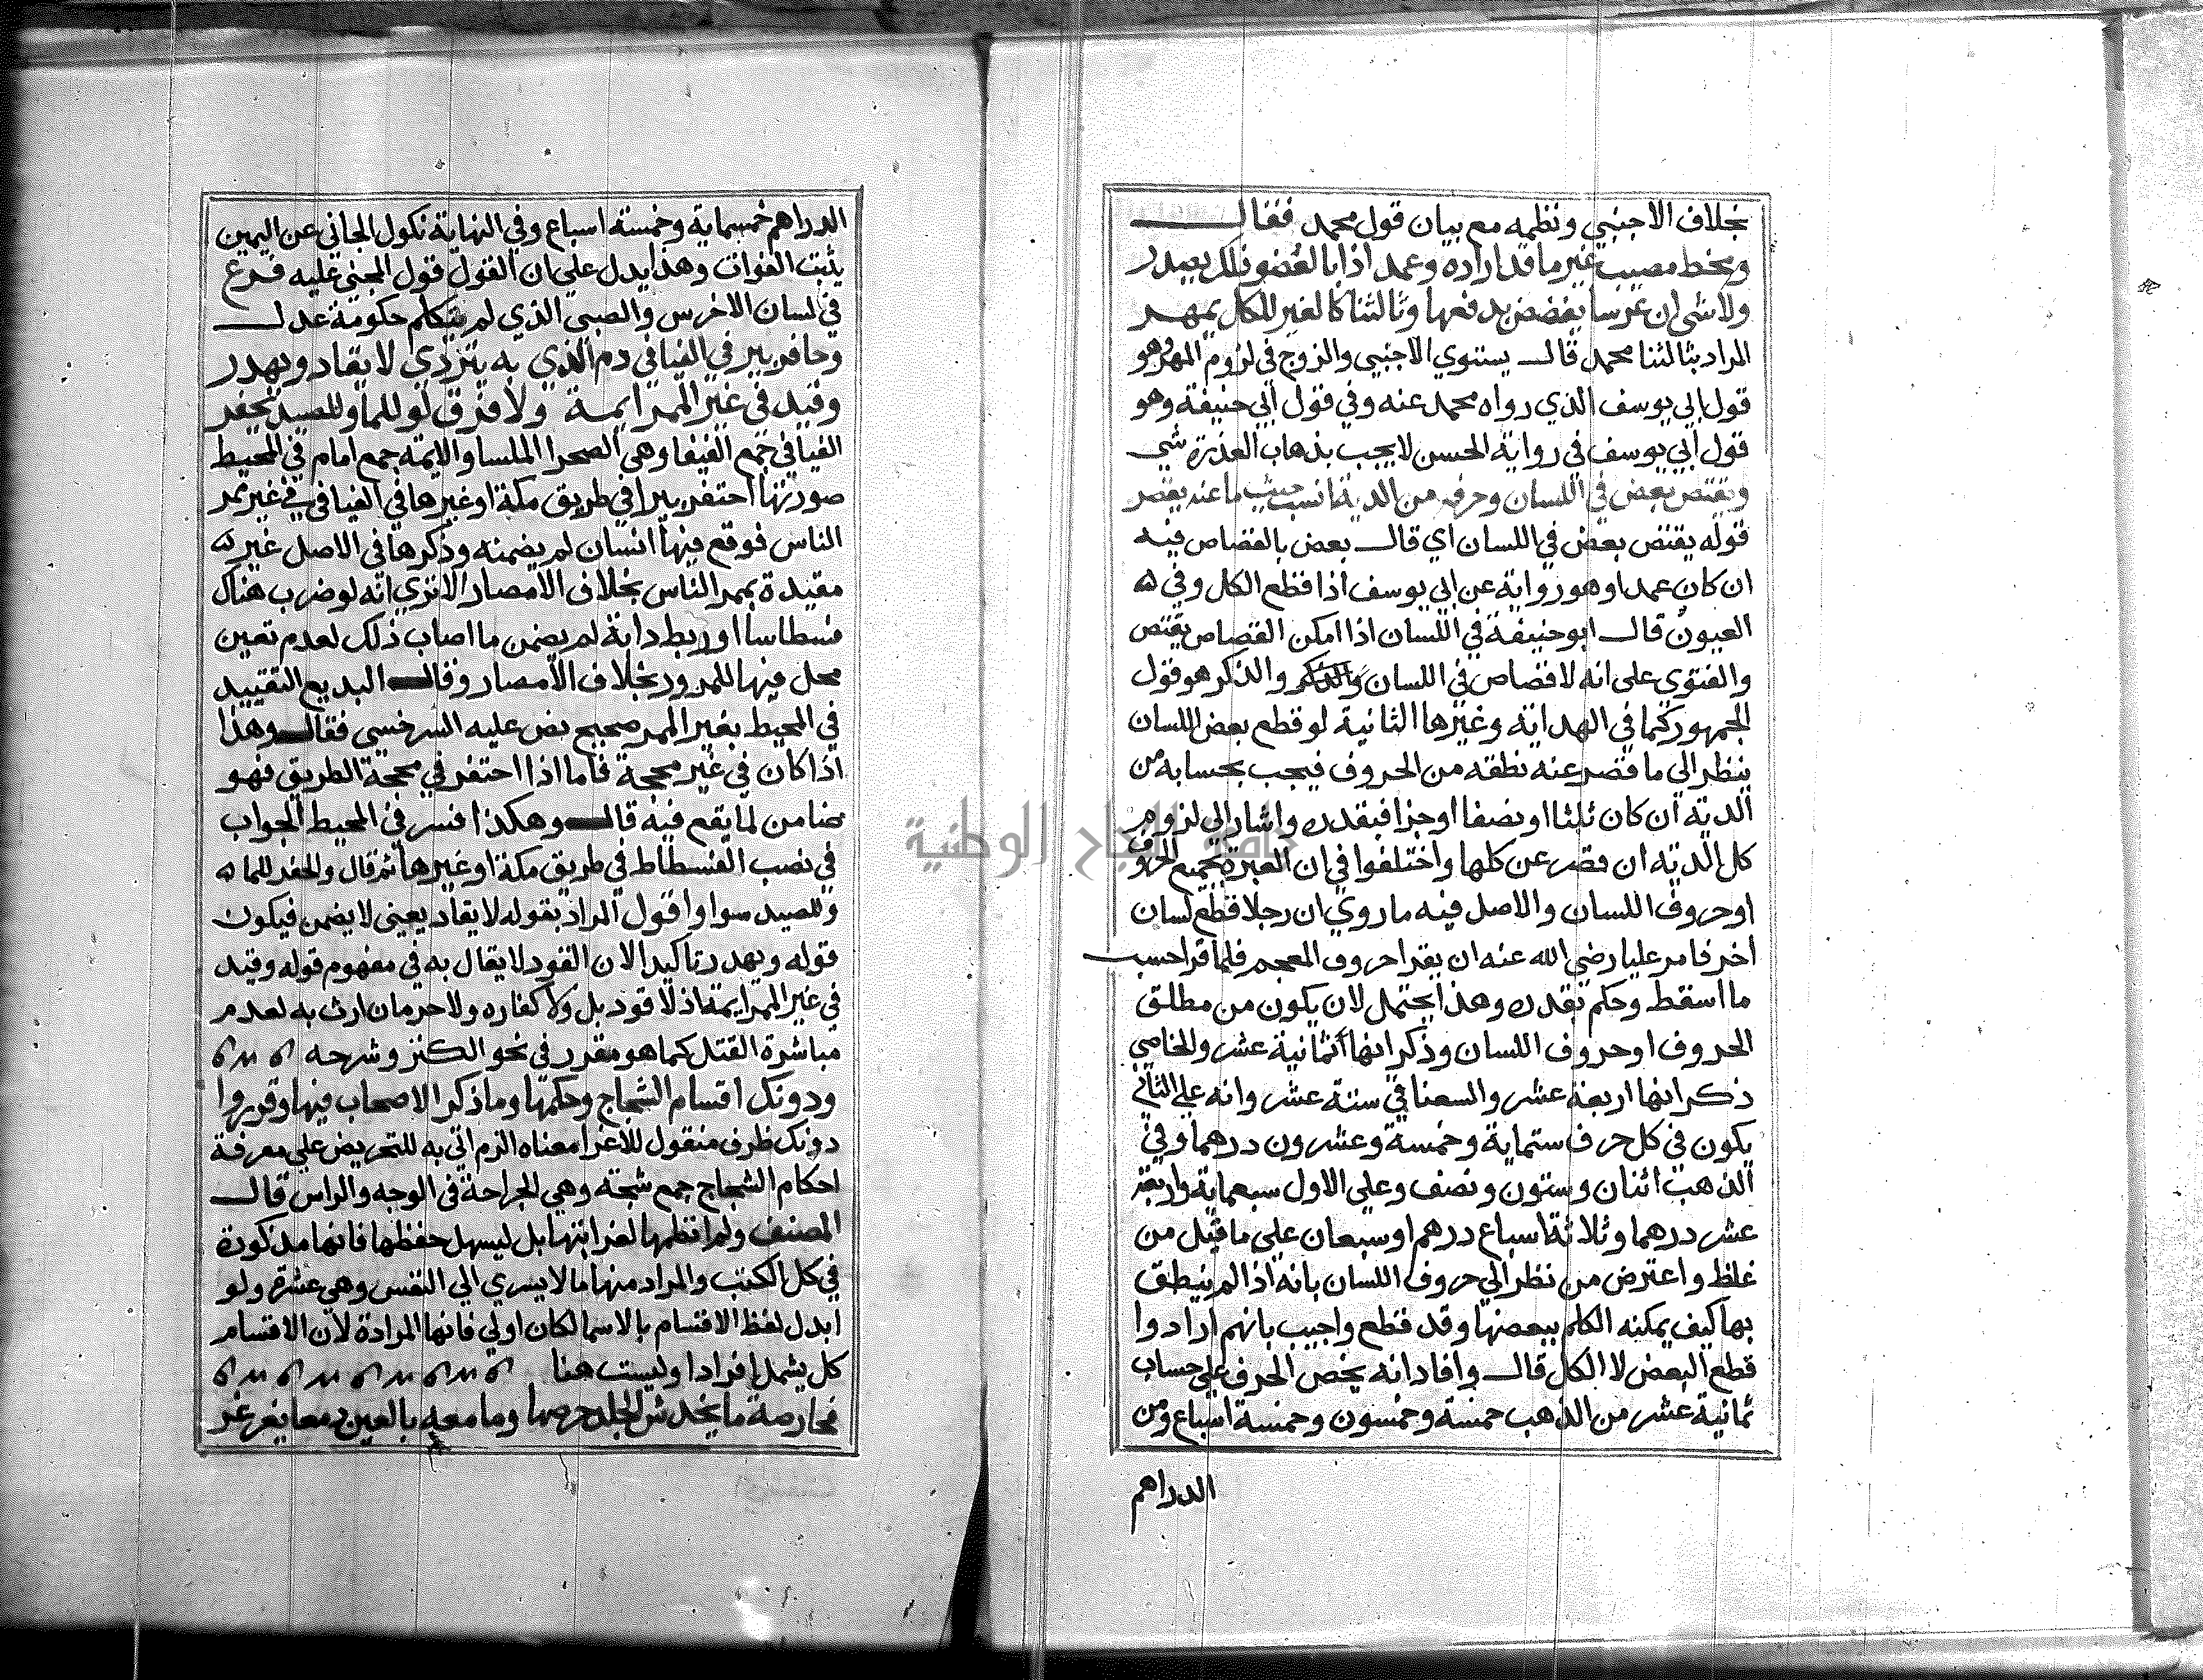 بخلاف الاجنبي ونظمه مع بيان قول محمد فقال
ومخط مصيب غير ما قد اراده وعمد اذا بالعضو ذلك يصدر
ولا شي ان عرسا بدفعها وثالثنا كالغير للكل يمهر
المراد بثالثنا محمد قال يستوي الاجنبي والزوج في لزوم المهر وهو
قول ابي يوسف الذي رواه محمد عنه وفي قول ابي حنيفة وهو
قول ابي يوسف في رواية الحسن لا يجب بذهاب العذرة شي
ويقتص بعض في اللسان وحرفه من الدية انسب حيث ما عنه يقصر
قوله يقتص بعض في اللسان اي قال بعض بالقصاص فيه
ان كان عمدا وهو رواية عن ابي يوسف اذا قطع الكل وفي
العيون قال ابو حنيفة في اللسان اذا امكن القصاص يقتص
والفتوي على انه لا قصاص في اللسان والذكر هو قول
الجمهور كما في الهداية وغيرها الثانية لو قطع بعض اللسان
ينظر الي ما قصر عنه نطقه من الحروف فيجب بحسابه من
الدية ان كان ثلثا او نصفا او جزا فبقدره واشار الي لزوم
كل الدية ان قصر عن كلها واختلفوا في ان العبرة بجميع الحروف
او حروف اللسان والاصل فيه ما روي ان رجلا قطع لسان
اخر فامر عليا رضي الله عنه ان يقرا حروف المعجم فلما قرا حسب
ما اسقط وحكم بقدره وهذا يحتمل لان يكون من مطلق
الحروف او حروف اللسان وذكر انها ثمانية عشر والخاصي
ذكر انها اربعة عشر والسعنافي ستة عشر وانه علي الثاني
يكون في كل حرف ستماية وخمسة وعشرون درهما وفي
الذهب اثنان وستون ونصف وعلي الاول سبعماية واربعة
عشر درهما وثلاثة اسباع درهم او سبعان علي ما قيل من
غلظ واعترض من نظر الي حروف اللسان بانه اذا لم ينطق
بها كيف يمكنه الكلم ببعضها وقد قطع واجيب بانهم ارادوا
قطع البعض لا الكل قال وافاد انه يخص الحرف علي حساب
ثمانية عشر من الذهب خمسة وخمسون وخمسة اسباع ومن
الدراهم
الدراهم خمسماية وخمسة اسباع وفي النهاية نكول الجاني عن اليمين
يثبت الفوات وهذا يدل علي ان القول قول المجني عليه فرع
في لسان الاخرس والصبي الذي لم يتكلم حكومة عدل
وحافر بير في الفيافي دم الذي به يتردي لا يقاد ويهدر
وقيد في غير الممر ايمة ولا فرق لو للما وللصيد يحفر
الفيافي جمع الفيفا وهي الصحرا الملسا والايمة جمع امام في المحيط
صورتها احتفر بيرا في طريق مكة او غيرها في الفيافي في غير ممر
الناس فوقع فيها انسان لم يضمنه وذكرها في الاصل غير
مقيدة بممر الناس بخلاف الامصار الا تري انه لو ضرب هناك
فسطاسا او ربط دابة لم يضمن ما اصاب ذلك لعدم تعين
محل فيها للمرور بخلاف الامصار وقال البديع التقييد
في المحيط بغير الممر صحيح نص عليه السرخسي فقال وهذا
اذا كان في غير محجة فاما اذا احتفر في محجة الطريق فهو
ضامن لما يقع فيه قال وهكذا فسر في المحيط الجواب
في نصب الفسطاط في طريق مكة او غيرها ثم قال والحفر للما
وللصيد سوا واقول المراد بقوله لا يقاد يعني لا يضمن فيكون
قوله ويهدر تاكيدا لان القود لا يقال به في مفهوم قوله وقيد
في غير الممر ايمة اذ لا قود بل ولا كفاره ولا حرمان ارث به لعدم
مباشرة القتل كما هو مقدر في نحو الكنز وشرحه
ودونك اقسام الشجاج وحكمها وما ذكر الاصحاب فيها وقرروا
دونك ظرف منقول للاغرا معناه الزم اتي به للتحريض علي معرفة
احكام الشجاج جمع شجة وهي الجراحة في الوجه والراس قال
المصنف ولم انظمها لغرابتها بل ليسهل حفظها فانها مذكورة
في كل الكتب والمراد منها ما لا يسري الي النفس وهي عشرة ولو
ابدل لفظ الاقسام بالاسما لكان اولي فانها المرادة لان الاقسام
كل يشمل افرادا وليست هنا
فحارصة ما يخدش الجلد حرصها وما معه بالعين دمعا يغرغر